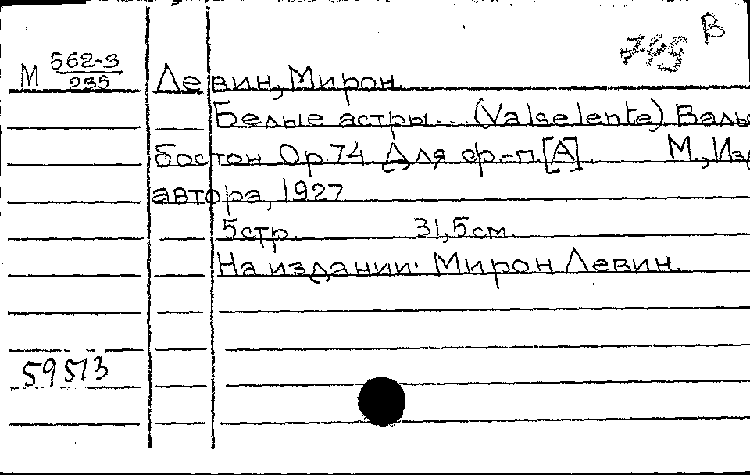 В
745
М 562-3
235
Левин, Мирон.
Белые астры... (Valse lente) Валь
бостон Ор 74 Для ф-п. [А]. М., Изд
автора, 1927
5 стр. 31,5 см.
На издании: Мирон Левин.
59513